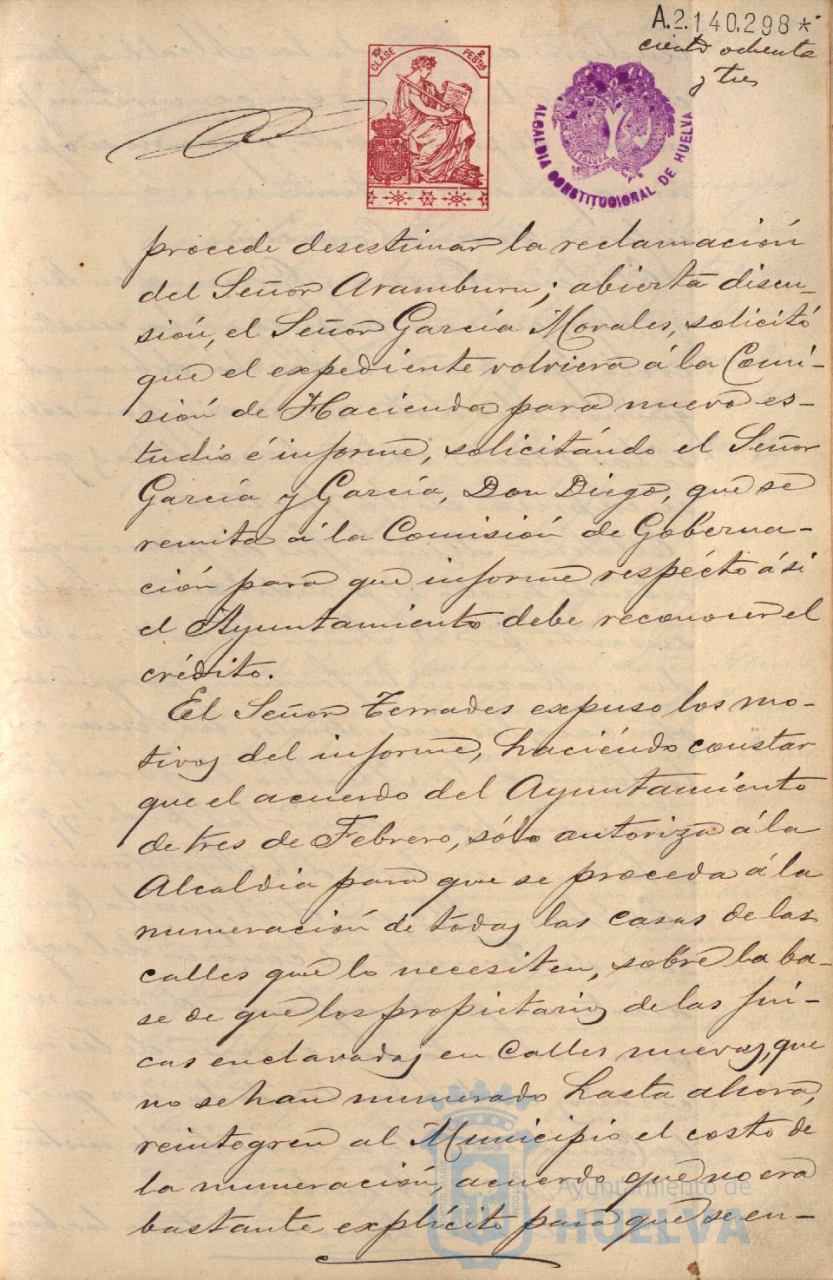 A.2.140.298*
ciento ochenta
y tres
10ª CLASE 2 PESTAS
ALCALDIA CONSTITUCIONAL DE HUELVA
procede desestimar la reclamación
del Señor Aramburu; abierta discu-
sión, el Señor García Morales, solicitó
que el expediente volviera á la Comi-
sión de Hacienda para nuevo es-
tudio é informe, solicitándo el Señor
García y García, Don Diego, que se
remita á la Comisión de Goberna-
ción para que informe respécto á si
el Ayuntamiento debe reconocer el
crédito.
El Señor Terrades expuso los mo-
tivos del informe, haciéndo constar
que el acuerdo del Ayuntamiento
de tres de Febrero, sólo autoriza á la
Alcaldia para que se proceda á la
numeración de todas las casas de las
calles que lo necesiten, sobre la ba-
se de que los propietarios de las fin-
cas enclavadas en calles nuevas, que
no se han numerado hasta ahora,
reintegren al Municipio el costo de
la numeración, acuerdo que no era
bastante explícito para que se en-
Ayuntamiento de
HUELVA